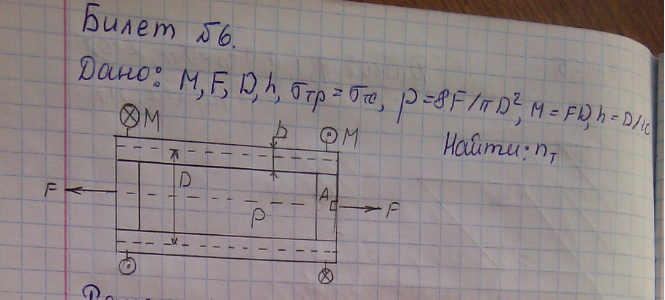 Билет №6.
Дано: M, F, D, h, σтр = σтс, p = 8F/πD², M = FD, h = D/10
Найти: nт
M h M
F D p A F